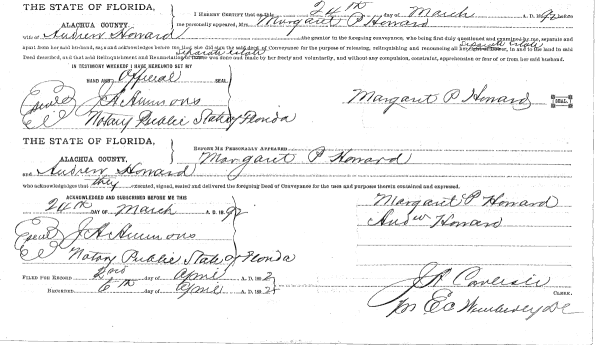 THE STATE OF FLORIDA,
ALACHUA COUNTY.
I HEREBY CERTIFY that on this 24th day of March A. D. 1892 before
me personally appeared, Mrs. Margaret P Howard
wife of Andrew Howard the grantor in the foregoing conveyance, who being first duly questioned and examined by me, separate and
apart from her said husband, says and acknowledges before me that she did sign the said deed of Conveyance for the purpose of releasing, relinquishing and renouncing all separate estate in and to the land in said
Deed described, and that said relinquishment and Renunciation of separate estate was done and made by her freely and voluntarily, and without any compulsion, constraint, apprehension or fear of or from her said husband.
IN TESTIMONY WHEREOF I HAVE HEREUNTO SET MY
HAND AND Official SEAL.
J A Ammons
Notary Public State of Florida
Margaret P Howard SEAL.
THE STATE OF FLORIDA,
ALACHUA COUNTY.
BEFORE ME PERSONALLY APPEARED Margaret P Howard
and Andrew Howard
who acknowledges that they executed, signed, sealed and delivered the foregoing Deed of Conveyance for the uses and purposes therein contained and expressed.
ACKNOWLEDGED AND SUBSCRIBED BEFORE ME THIS
24th DAY OF March A. D. 1892
J A Ammons
Notary Public State of Florida
Margaret P Howard
Andw Howard
FILED FOR RECORD 2nd day of April A. D. 1892
RECORDED 6th day of April A. D. 1892
J A Carlisle
CLERK.
per E C Wimberley DC